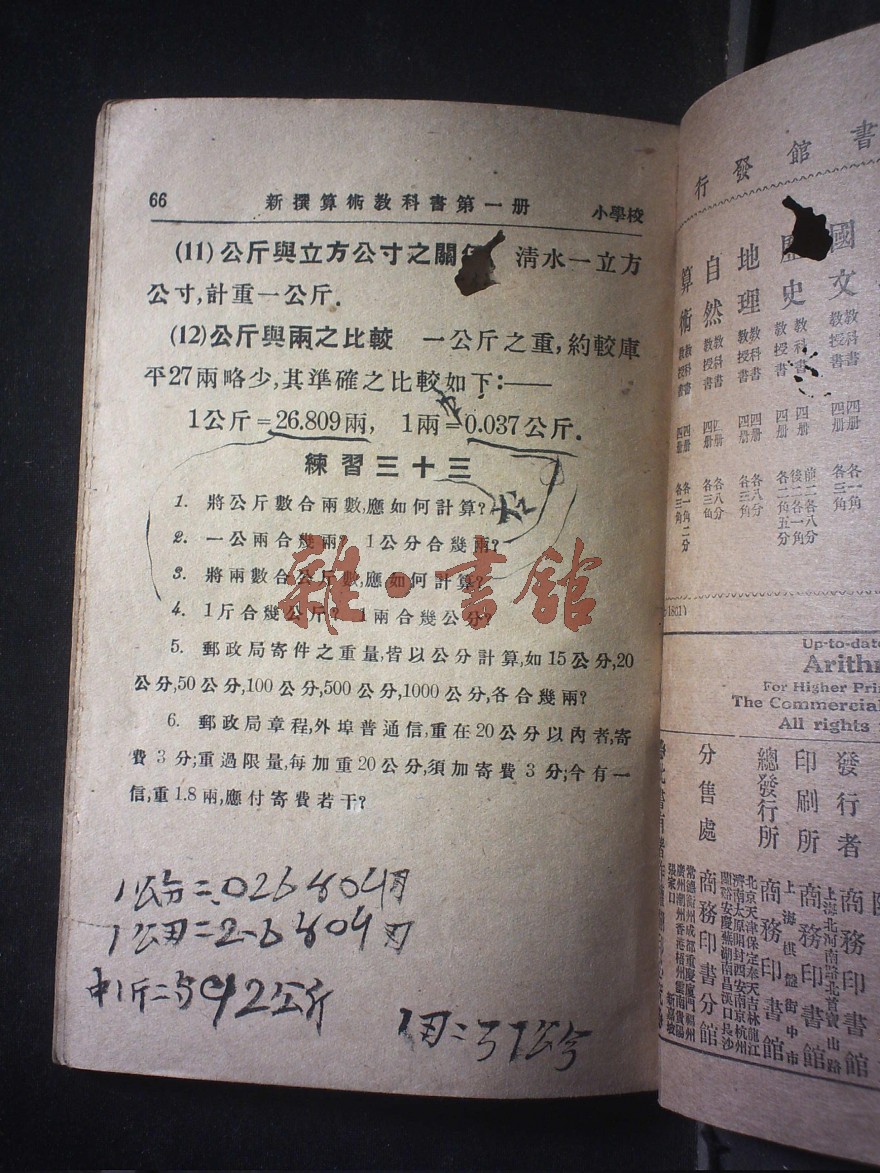 66 新撰算術教科書第一册 小學校
(11)公斤與立方公寸之關 清水一立方
公寸,計重一公斤.
(12)公斤與兩之比較 一公斤之重,約較庫
平27兩略少,其準確之比較如下:——
1公斤=26.809兩, 1兩=0.037公斤.
練習三十三
1. 將公斤數合兩數,應如何計算?
2. 一公兩合幾兩? 1公分合幾兩?
3. 將兩數合公斤數,應如何計算?
4. 1斤合幾公斤? 1兩合幾公分?
雜·書館
5. 郵政局寄件之重量,皆以公分計算,如15公分,20
公分,50公分,100公分,500公分,1000公分,各合幾兩?
6. 郵政局章程,外埠普通信,重在20公分以內者,寄
費3分;重過限量,每加重20公分,須加寄費3分;今有一
信,重1.8兩,應付寄費若干?
書館發行
國文 教科書 教授書 四册 四册 各三角
歷史 教科書 教授書 四册 四册
地理 教科書 教授書 四册 四册 各八分 各三角
自然 教科書 教授書 四册 四册 各八分 各三角
算術 教科書 教授書 四册 四册 各一角二分 各三角
Up-to-date
Arith
For Higher Pri
The Commercial
All rights
發行者 商務印書館
印刷所 上海北河南路北首寶山路 商務印書館
總發行所 上海棋盤街中市 商務印書館
分售處 商務印書分館